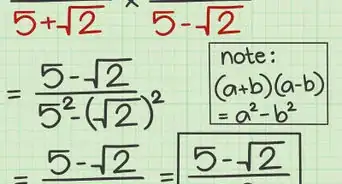 5+√2 × 5-√2
= 5-√2 / 5²-(√2)²
note:
(a+b)(a-b)
= a²-b²
= 5-√2 = 5-√2